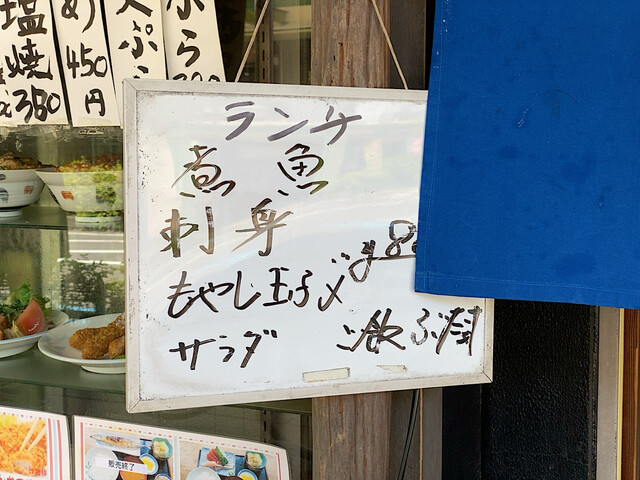 塩焼
380
め
450円
ぷ
ぷら
ランチ
煮魚
刺身
もやし玉子〆
¥8
サラダ
ご飲ぶ付
販売終了